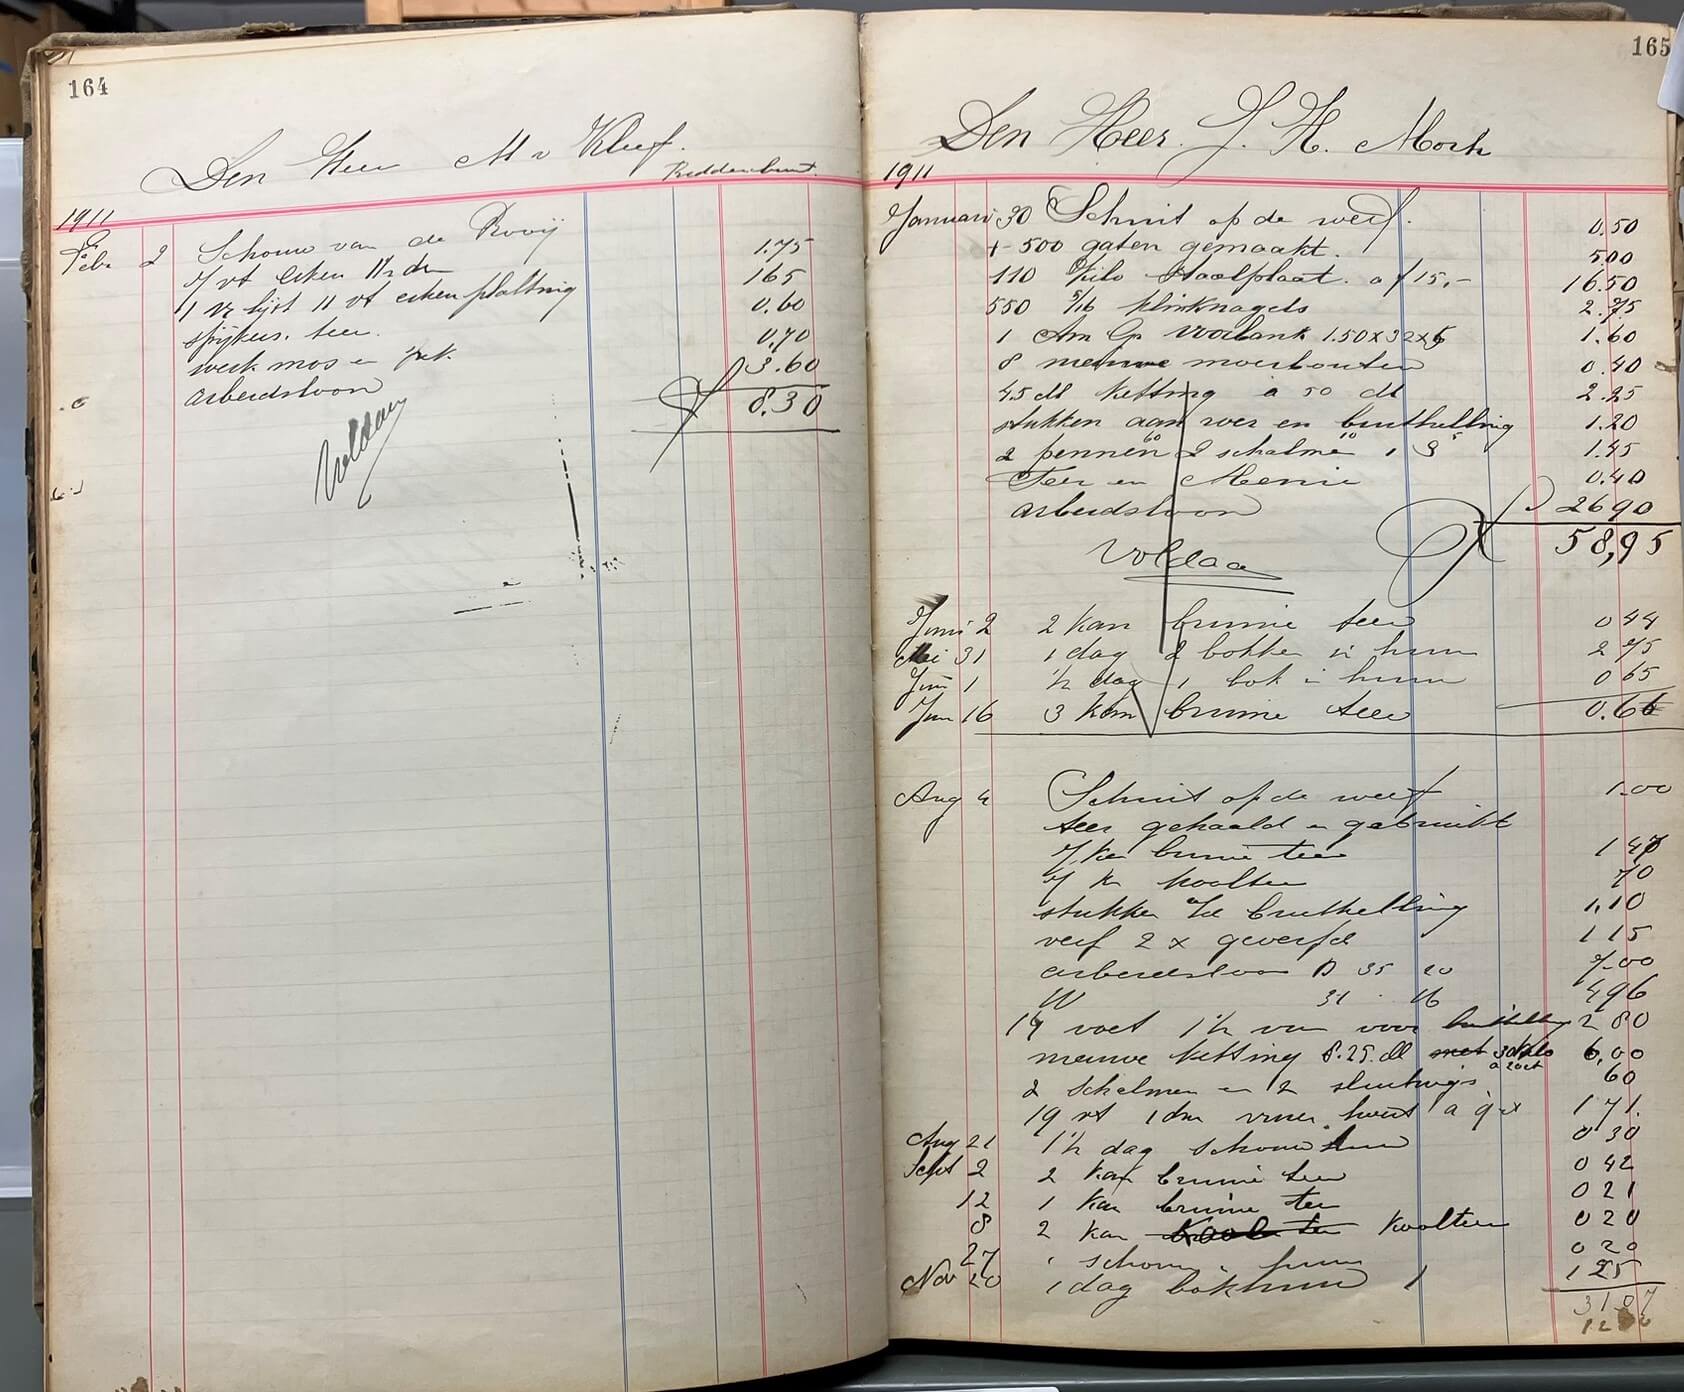 164
Den Heer M v Kleef.
Ridderbuurt.
1911
Febr 2 Schouw van de Rooij
7 vt eiken 1.75
1 1/2 lijst 11 vt eiken 165
spijkers. teer. 0,60
werk mos en pek 0,70
arbeidsloon 3.60
8.30
Voldaan
165
Den Heer. J. H. Mock
1911
Januari 30 Schuit op de werf. 0.50
+ 500 gaten gemaakt. 500
110 Kilo Staalplaat. a f 15,- 16.50
550 5/16 klinknagels 2.75
1 Am Gr voorbank 1.50 x 32 x 5 1.60
8 nieuwe moerbouten 0.40
45 dl ketting a 50 dl 2.25
stukken aan roer en buikdelling 1.20
2 pennen 60 2 schalmen 10 1 3 5 1.45
Teer en Menie 0.40
arbeidsloon 2690
58,95
Voldaan
Juni 2 2 kan bruine teer 0 44
Mei 31 1 dag 2 bokken in huur 2 75
Juni 1 1/2 dag 1 bok in huur 0 65
Juni 16 3 kan bruine teer 0.66
Aug 4 Schuit op de werf 1.00
teer gehaald en gebruikt
7 kan bruine teer 1 47
7 kan koolteer 70
stukken buikdelling 1,10
verf 2 x geverfd 1 15
arbeidsloon D 35 20 7.00
W 31 16 496
14 voet 1 1/2 vuren voor buikdelling 2 80
nieuwe ketting 8.25. dl met 30 Kilo a 20 ct 6,00
2 Schalmen en 2 sluitwigs 60
19 vt 1 dm vuren hout a 9 ct 1 71.
Aug 21 1 1/2 dag schouw huur 0 30
Sept 2 2 kan bruine teer 0 42
12 1 kan bruine teer 0 21
8 2 kan koolteer 0 20
27 1 schouw huur 0 20
Nov 20 1 dag bokhuur 1 1 25
3107